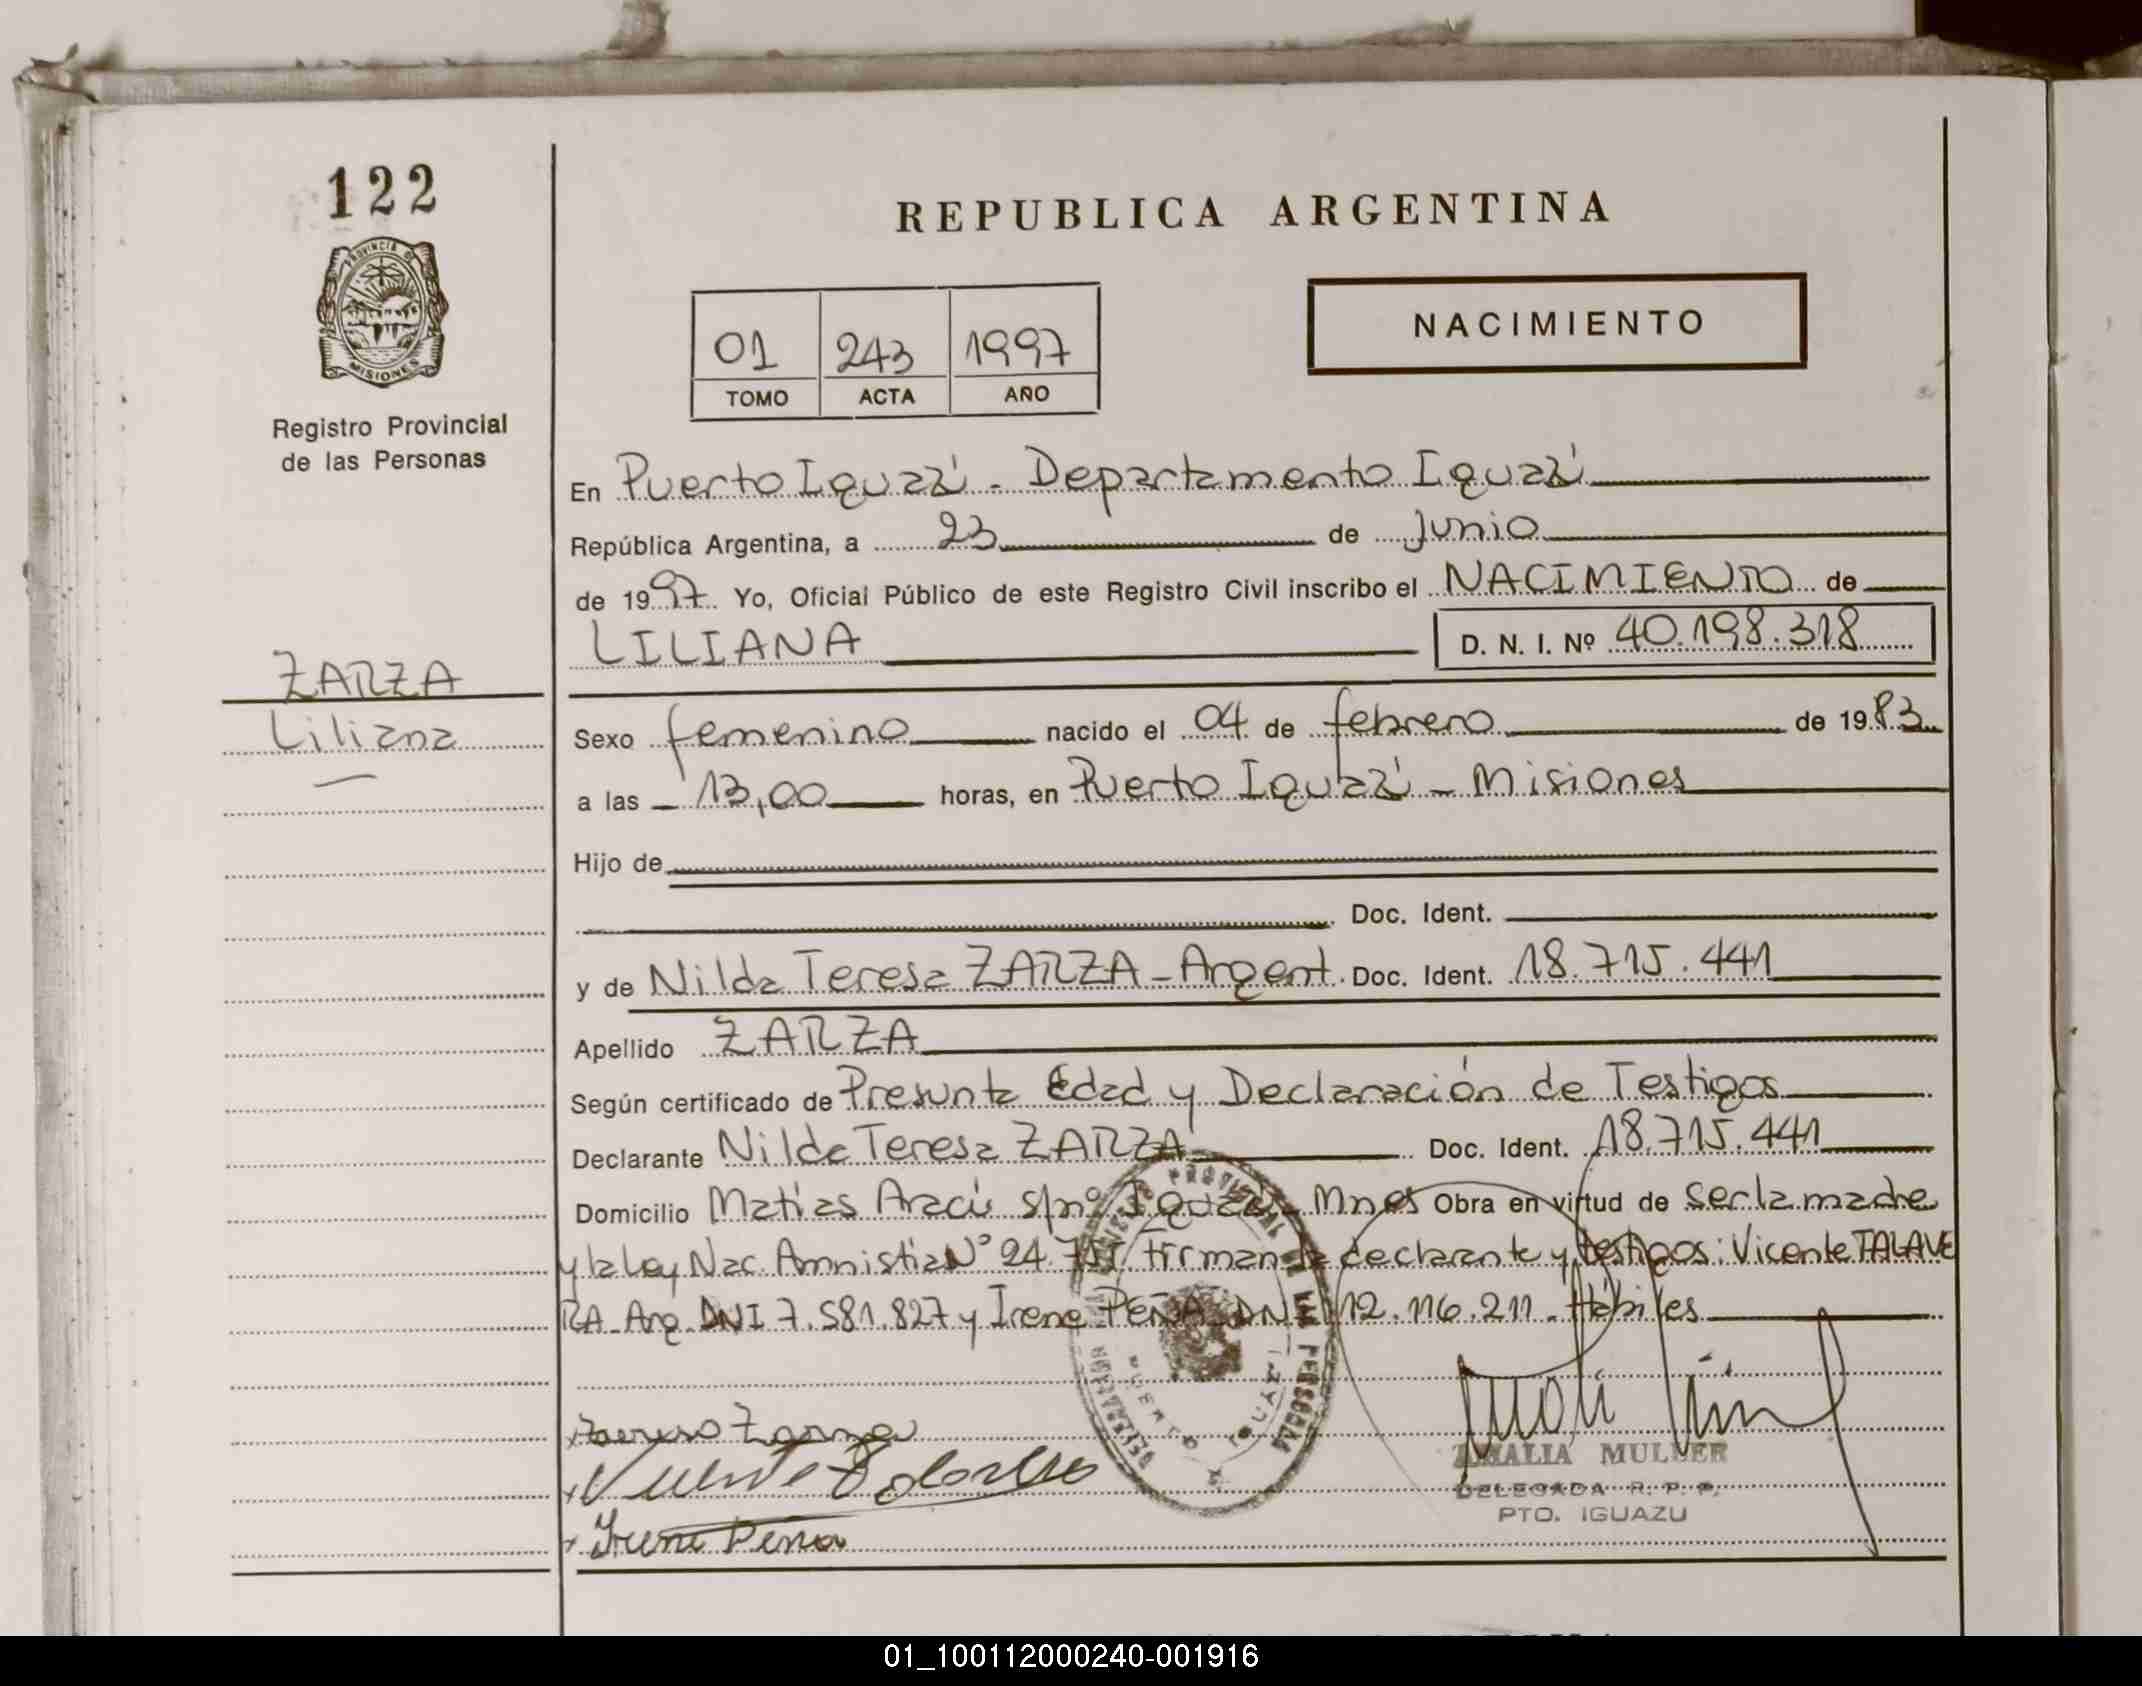 122
PROVINCIA DE
MISIONES
Registro Provincial
de las Personas
REPUBLICA ARGENTINA
01 243 1997
TOMO ACTA AÑO
NACIMIENTO
En Puerto Iguazú - Departamento Iguazú
República Argentina, a 23 de Junio
de 1997 Yo, Oficial Público de este Registro Civil inscribo el NACIMIENTO de
LILIANA D. N. I. Nº 40.198.318
ZARZA
Liliana
Sexo femenino nacido el 04 de febrero de 1983
a las 13,00 horas, en Puerto Iguazú - Misiones
Hijo de
Doc. Ident.
y de Nilda Teresa ZARZA - Argent. Doc. Ident. 18.715.441
Apellido ZARZA
Según certificado de Presunta Edad y Declaración de Testigos
Declarante Nilda Teresa ZARZA Doc. Ident. 18.715.441
Domicilio Matias Aracú s/nº Iguazú - Mnes Obra en virtud de ser la madre
y la Ley Nac. Amnistia Nº 24. Firman la declarante y testigos: Vicente TALAVE
RA - Arg. DNI 7.581.827 y Irene PEÑA DNI 12.116.211 - Hábiles
Zarza
Vicente
Irene Peña
PUERTO IGUAZU
AMALIA MULLER
DELEGADA R. P. P.
PTO. IGUAZU
01_100112000240-001916